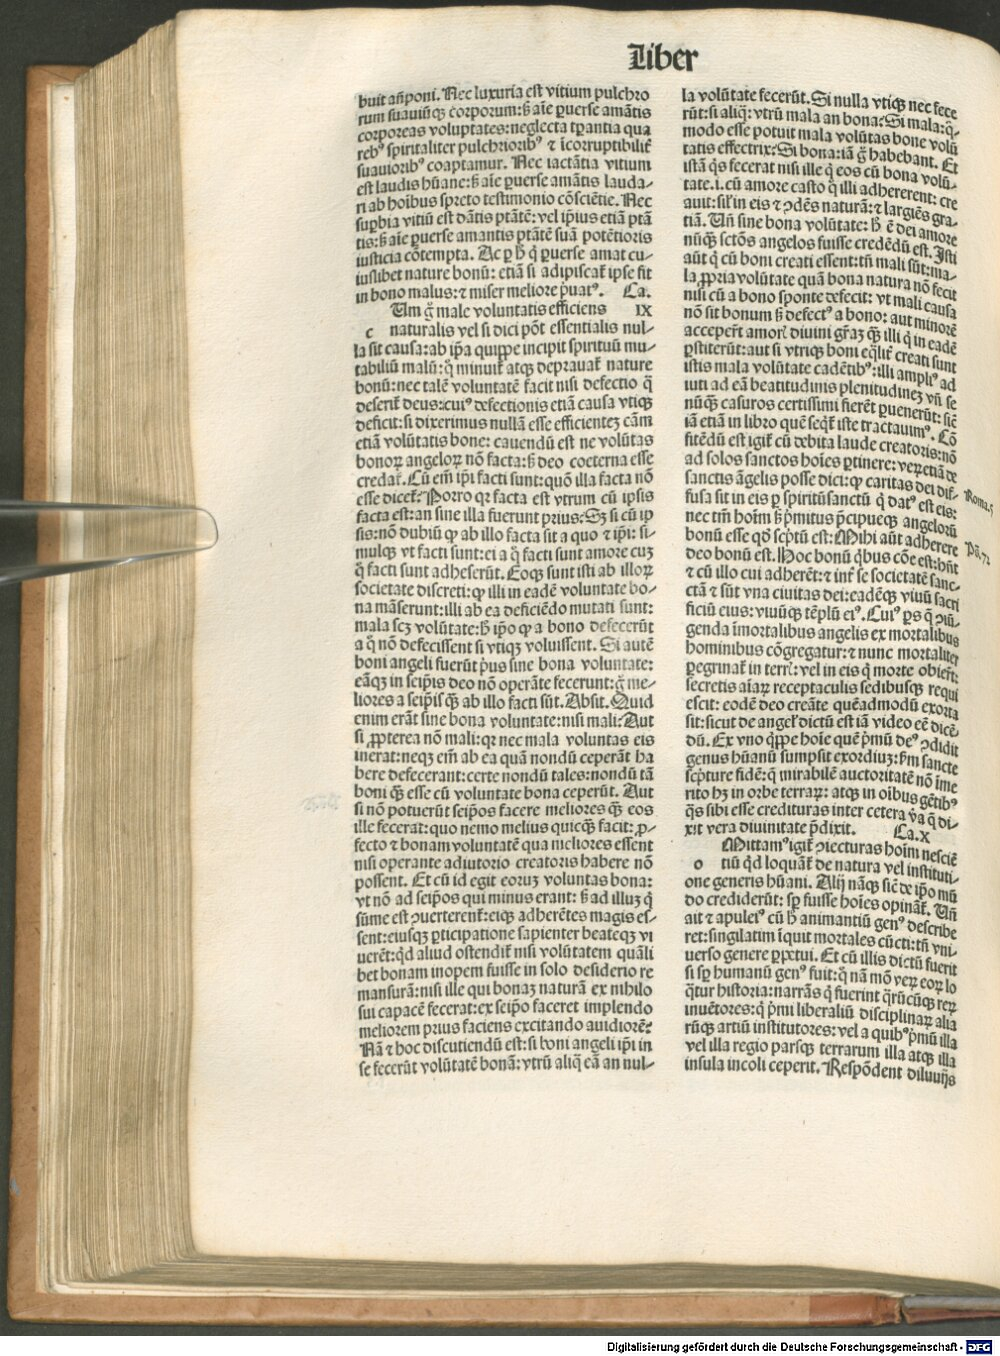 Liber
buit añponi. Nec luxuria est vitium pulchro
rum suauiūqꝫ corporum: ẜ aīe ꝑuerse amātis
corporeas voluptates: neglecta tꝑantia qua
rebꝰ spiritaliter pulchrioribꝰ ⁊ īcorruptibilit̄
suauioribꝰ coaptamur. Nec iactātia vitium
est laudis hūane: ẜ aīe ꝑuerse amātis lauda⸗
ri ab hoībus spreto testimonio cōsciētie. Nec
suꝑbia vitiū est dātis ptātē: vel ip̄ius etiā ptā
tis: ẜ aīe ꝑuerse amantis ptātē suā potētioris
iusticia cōtempta. Ac ꝑ h̄ q̄ ꝑuerse amat cu⸗
iuslibet nature bonū: etiā si adipiscat̄ ipse fit
in bono malus: ⁊ miser meliore p̄uatꝰ. Ca.
Um g̊ male voluntatis efficiens IX
c naturalis vel si dici pōt essentialis nul⸗
la sit causa: ab ip̄a quippe incipit spirituū mu⸗
tabiliū malū: q̊ minuit̄ atqꝫ deprauat̄ nature
bonū: nec talē voluntatē facit nisi defectio q̄
deserit̄ deus: cuiꝰ defectionis etiā causa vtiqꝫ
deficit: si dixerimus nullā esse efficienteꝫ cām
etiā volūtatis bone: cauendū est ne volūtas
bonoꝝ angeloꝝ nō facta: ẜ deo coeterna esse
credat̄. Cū em̄ ip̄i facti sunt: quō illa facta nō
esse dicet̄: Porro qꝛ facta est vtrum cū ipsis
facta est: an sine illa fuerunt prius: Sꝫ si cū ip
sis: nō dubiū ꝙ ab illo facta sit a quo ⁊ ip̄i: si⸗
mulqꝫ vt facti sunt: ei a q̊ facti sunt amore cuꝫ
q̊ facti sunt adheserūt. Eoqꝫ sunt isti ab illoꝝ
societate discreti: ꝙ illi in eadē voluntate bo⸗
na māserunt: illi ab ea deficiēdo mutati sunt:
mala scꝫ volūtate: h̄ ip̄o ꝙ a bono defecerūt
a q̊ nō defecissent si vtiqꝫ voluissent. Si autē
boni angeli fuerūt p̄us sine bona voluntate:
eāqꝫ in seip̄is deo nō operāte fecerunt: g̊ me⸗
liores a seip̄is qꝫ̄ ab illo facti sūt. Absit. Quid
enim erāt sine bona voluntate: nisi mali: Aut
si ꝓpterea nō mali: qꝛ nec mala voluntas eis
inerat: neqꝫ em̄ ab ea quā nondū ceperāt ha
bere defecerant: certe nondū tales: nondū tā
boni qꝫ̄ esse cū voluntate bona ceperūt. Aut
si nō potuerūt seip̄os facere meliores qꝫ̄ eos
ille fecerat: quo nemo melius quicqꝫ̄ facit: ꝓ⸗
fecto ⁊ bonam voluntatē qua meliores essent
nisi operante adiutorio creatoris habere nō
possent. Et cū id egit eoruꝫ voluntas bona:
vt nō ad seip̄os qui minus erant: ẜ ad illuꝫ q̄
sūme est ꝯuerterent̄: eiqꝫ adherētes magis es⸗
sent: eiusqꝫ ꝑticipatione sapienter beateqꝫ vi
uerēt: qd̄ aliud ostendit̄ nisi volūtatem quāli
bet bonam inopem fuisse in solo desiderio re
mansurā: nisi ille qui bonaꝫ naturā ex nihilo
sui capacē fecerat: ex seip̄o faceret implendo
meliorem prius faciens excitando auidiorē:
Nā ⁊ hoc discutiendū est: si boni angeli ip̄i in
se fecerūt volūtatē bonā: vtrū aliq̄ eā an nul⸗
la volūtate fecerūt. Si nulla vtiqꝫ nec fece
rūt: si aliq̄: vtrū mala an bona: Si mala: q̄⸗
modo esse potuit mala volūtas bone volū
tatis effectrix: Si bona: iā g̊ habebant. Et
istā q̄s fecerat nisi ille q̄ eos cū bona volū⸗
tate. i. cū amore casto q̊ illi adhererent: cre
auit: sil̄ in eis ⁊ ꝯdēs naturā: ⁊ largiēs gra⸗
tiā. Uñ sine bona volūtate: h̄ ē dei amore
nūqꝫ̄ sctōs angelos fuisse credēdū est. Isti
aūt q̄ cū boni creati essent: tñ mali sūt: ma⸗
la ꝓpria volūtate quā bona natura nō fecit
nisi cū a bono sponte defecit: vt mali causa
nō sit bonum ẜ defectꝰ a bono: aut minorē
acceper̄t amorē diuini gr̄aꝫ qꝫ̄ illi q̄ in eadē
ꝑstiterūt: aut si vtriqꝫ boni eq̄lit̄ creati sunt
istis mala volūtate cadētibꝰ: illi ampliꝰ ad
iuti ad eā beatitudinis plenitudineꝫ vñ se
nūqꝫ̄ casuros certissimi fierēt ꝑuenerūt: sic̄
iā etiā in libro quē seq̄t̄ iste tractauimꝰ. Cō
fitēdū est igit̄ cū debita laude creatoris: nō
ad solos sanctos hoīes ꝑtinere: veꝝetiā de
sanctis āgelis posse dici: ꝙ caritas dei dif⸗
fusa sit in eis ꝑ spiritūsanctū q̄ datꝰ est eis:
nec tm̄ hoīm ẜ p̄mitus p̄cipueqꝫ angeloꝝ
bonū esse qd̄ sc̄ptū est: Mihi aūt adherere
deo bonū est. Hoc bonū q̄bus cōe est: hn̄t
⁊ cū illo cui adherēt: ⁊ int̄ se societatē sanc⸗
ctā ⁊ sūt vna ciuitas dei: eadēqꝫ viuū sacri
ficiū eius: viuūqꝫ tēplū eiꝰ. Cuiꝰ ꝑs q̄ ꝯiū⸗
genda īmortalibus angelis ex mortalibus
hominibus cōgregatur: ⁊ nunc mortaliter
ꝑegrinat̄ in terr̄: vel in eis q̄ morte obier̄t:
secretis aīaꝝ receptaculis sedibusqꝫ requi
escit: eodē deo creāte quēadmodū exorta
sit: sicut de angel̄ dictū est iā video eē dicē⸗
dū. Ex vno q̄ppe hoīe quē p̄mū deꝰ ꝯdidit
genus hūanū sumpsit exordiuꝫ: ẜm sancte
sc̄pture fidē: q̄ mirabilē auctoritatē nō īme
rito hꝫ in orbe terraꝝ: atqꝫ in oībus gētibꝰ
q̄s sibi esse credituras inter cetera v̄a q̄ di⸗
xit vera diuinitate p̄dixit. Ca. X
Mittamꝰ igit̄ ꝯiecturas hoīm nesciē
o tiū qd̄ loquāt̄ de natura vel instituti⸗
one generis hūani. Alij nāqꝫ sic̄ de ip̄o mū
do crediderūt: sꝑ fuisse hoīes opināt̄. Uñ
ait ⁊ apuleiꝰ cū h̄ animantiū genꝰ describe
ret: singilatim īquit mortales cūcti: tñ vni⸗
uerso genere ꝑpetui. Et cū illis dictū fuerit
si sꝑ humanū genꝰ fuit: q̊ nā mō veꝝ eoꝝ lo
q̄tur historia: narrās q̄ fuerint q̄rūcūqꝫ reꝝ
inuētores: q̄ p̄mi liberaliū disciplinaꝝ alia
rūqꝫ artiū institutores: vel a quibꝰ p̄mū illa
vel illa regio parsqꝫ terrarum illa atqꝫ illa
insula incoli ceperit. Respōdent diluuijs
Roma. 5
Ps. 72
Digitalisierung gefördert durch die Deutsche Forschungsgemeinschaft - DFG